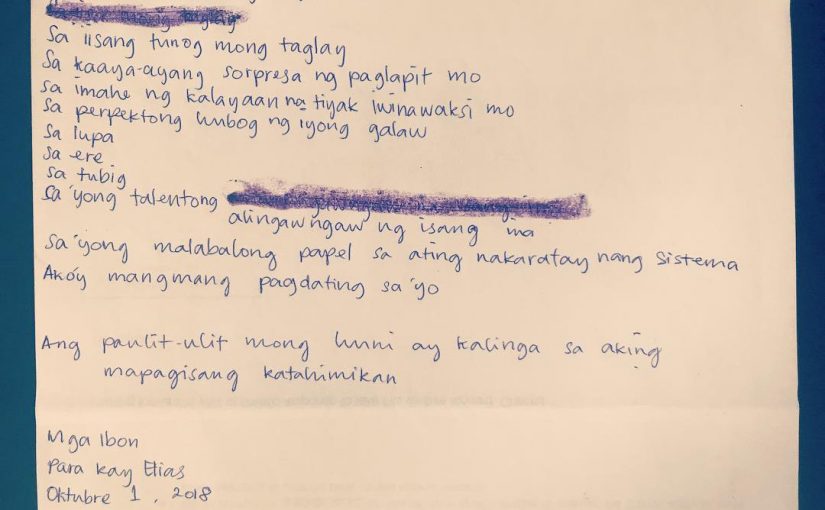 Sa iisang tunog mong taglay
Sa kaaya-ayang sorpresa ng paglapit mo
Sa imahe ng kalayaan na tiyak iwinawaksi mo
Sa perpektong hubog ng iyong galaw
Sa lupa
Sa ere
Sa tubig
Sa 'yong talentong
alingawngaw ng isang ina
Sa 'yong malabalong papel sa ating nakaratay nang sistema
Ako'y mangmang pagdating sa 'yo
Ang paulit-ulit mong huni ay kalinga sa aking
mapagisang katahimikan
Mga Ibon
Para kay Elias
Oktubre 1, 2018